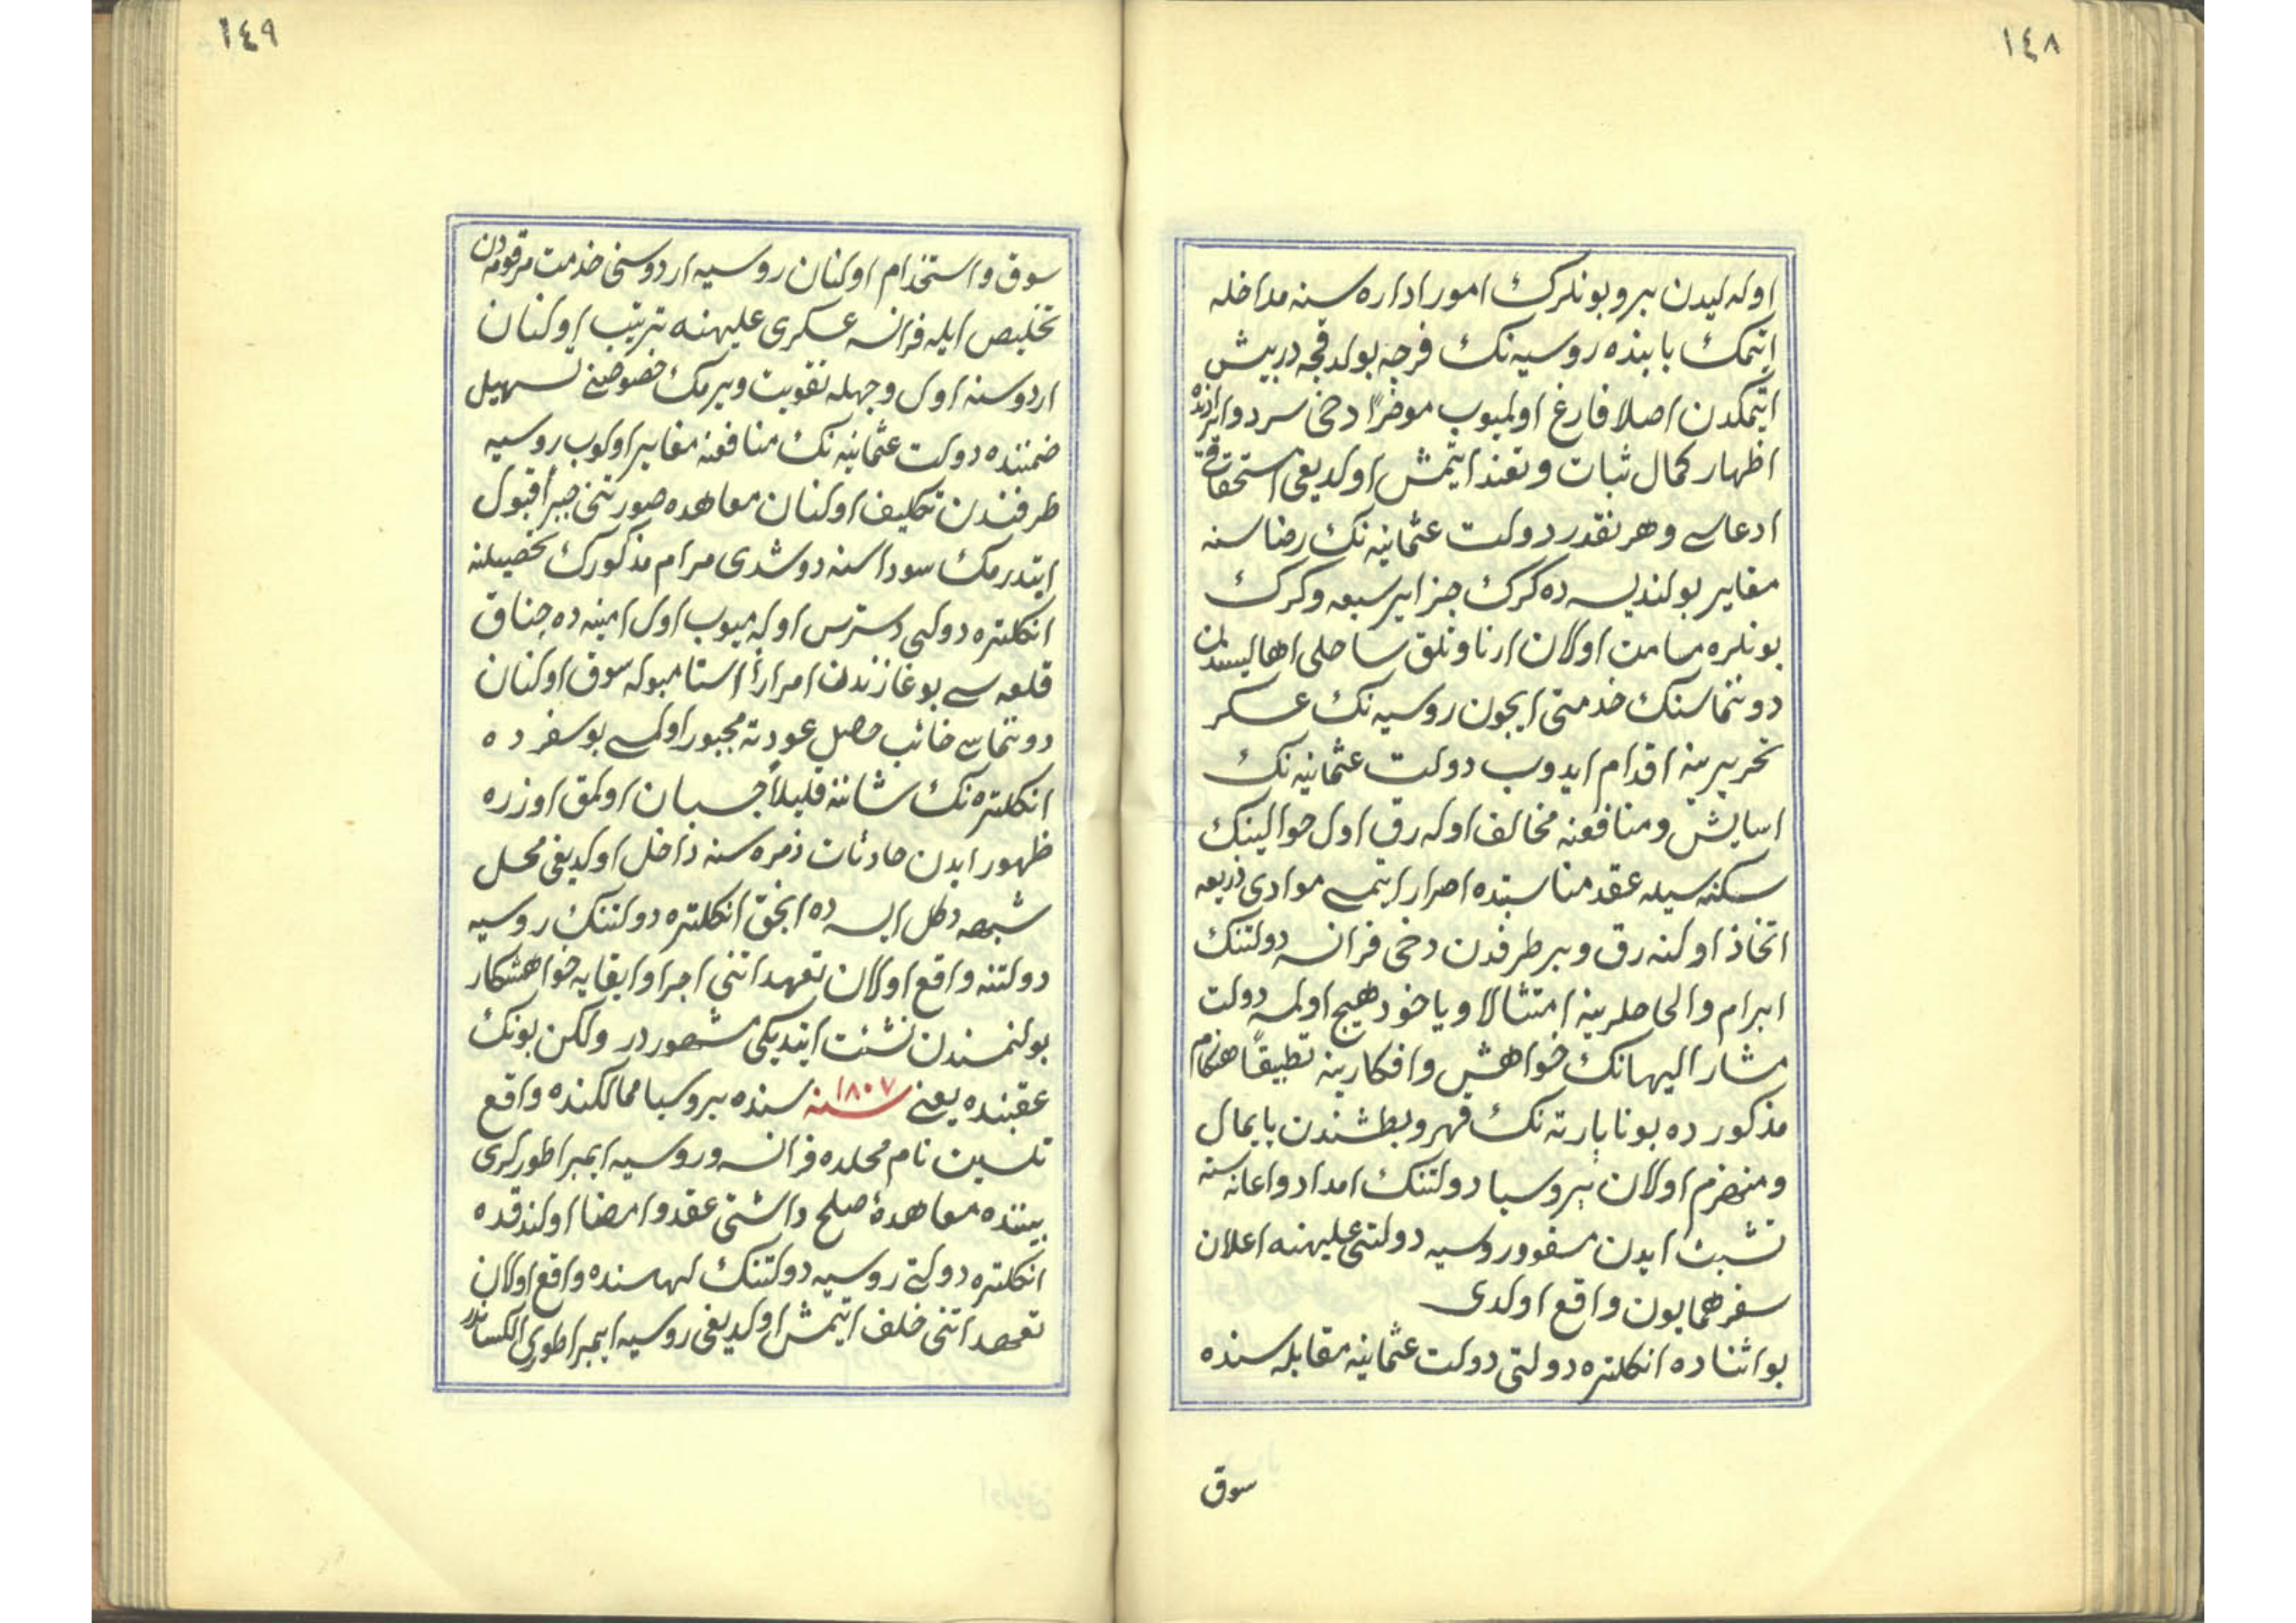 ١٤٨
اوله ليدن برو بونلرك امور اداره سنه مداخله
ايتمك بابنده روسيه نك فرجه بولدقجه درپيش
ايتمكدن اصلا فارغ اولميوب موخراً دخى سرد و ابرازنده
اظهار كمال ثبات و تعند ايتمش اولديغى استحقاق
ادعاسى و هر نقدر دولت عثمانيه نك رضاسنه
مغاير بولنديسه ده كرك جزاير سبعه و كرك
بونلره مسامت اولان ارناودلق ساحلى اهاليسندن
دوننماسنك خدمتى ايچون روسيه نك عسكر
تحريرينه اقدام ايدوب دولت عثمانيه نك
اسايش و منافعنه مخالف اوله رق اول حوالينك
سكنه سيله عقد مناسبتده اصرار ايتمسى موادى ذريعه
اتخاذ اولنه رق و بر طرفدن دخى فرانسه دولتنك
ابرام و الحاحلرينه امتثالا و ياخود هيچ اولمسه دولت
مشار اليهانك خواهش و افكارينه تطبيقاً هنكام
مذكورده بوناپارته نك قهر و بطشندن پايمال
و منهزم اولان پروسيا دولتنك امداد و اعانه سنه
تشبث ايدن مسفور روسيه دولتى عليهنه اعلان
سفر همايون واقع اولدى
بو اثناده انكلتره دولتى دولت عثمانيه مقابله سنده
سوق
١٤٩
سوق و استخدام اولنان روسيه اردوسنى خدمت مرقومه دن
تخليص ايله فرانسه عسكرى عليهنه ترتيب اولنان
اردوسنه اول وجهله تقويت ويرمك خصوصنى تسهيل
ضمننده دولت عثمانيه نك منافعنه مغاير اولوب روسيه
طرفندن تكليف اولنان معاهده صورتنى جبراً قبول
ايتدرمك سوداسنه دوشدى مرام مذكورك تحصيلنه
انكلتره دولتى دسترس اوله ميوب اول امينه ده چناق
قلعه سى بوغازندن امراراً استانبوله سوق اولنان
دوننماسى خائب حصل عودته مجبور اولمسى بو سفرده
انكلتره نك شاننه قليلاً چسبان اولمق اوزره
ظهور ايدن حادثات زمره سنه داخل اولديغى محل
شبهه دكل ايسه ده انجق انكلتره دولتنك روسيه
دولتنه واقع اولان تعهداتنى اجرا و ابقايه خواهشكار
بولنمسندن نشئت ايتديكى مشهوردر ولكن بونك
عقبنده يعنى سنه ١٨٠٧ سنده پروسيا ممالكنده واقع
تلسيت نام محلده فرانسه و روسيه ايمپراطورلرى
بيننده معاهدۀ صلح و اشتى عقد و امضا اولندقده
انكلتره دولتى روسيه دولتنك لهاسنده واقع اولان
تعهداتنى خلف ايتمش اولديغى روسيه ايمپراطورى الكساندر